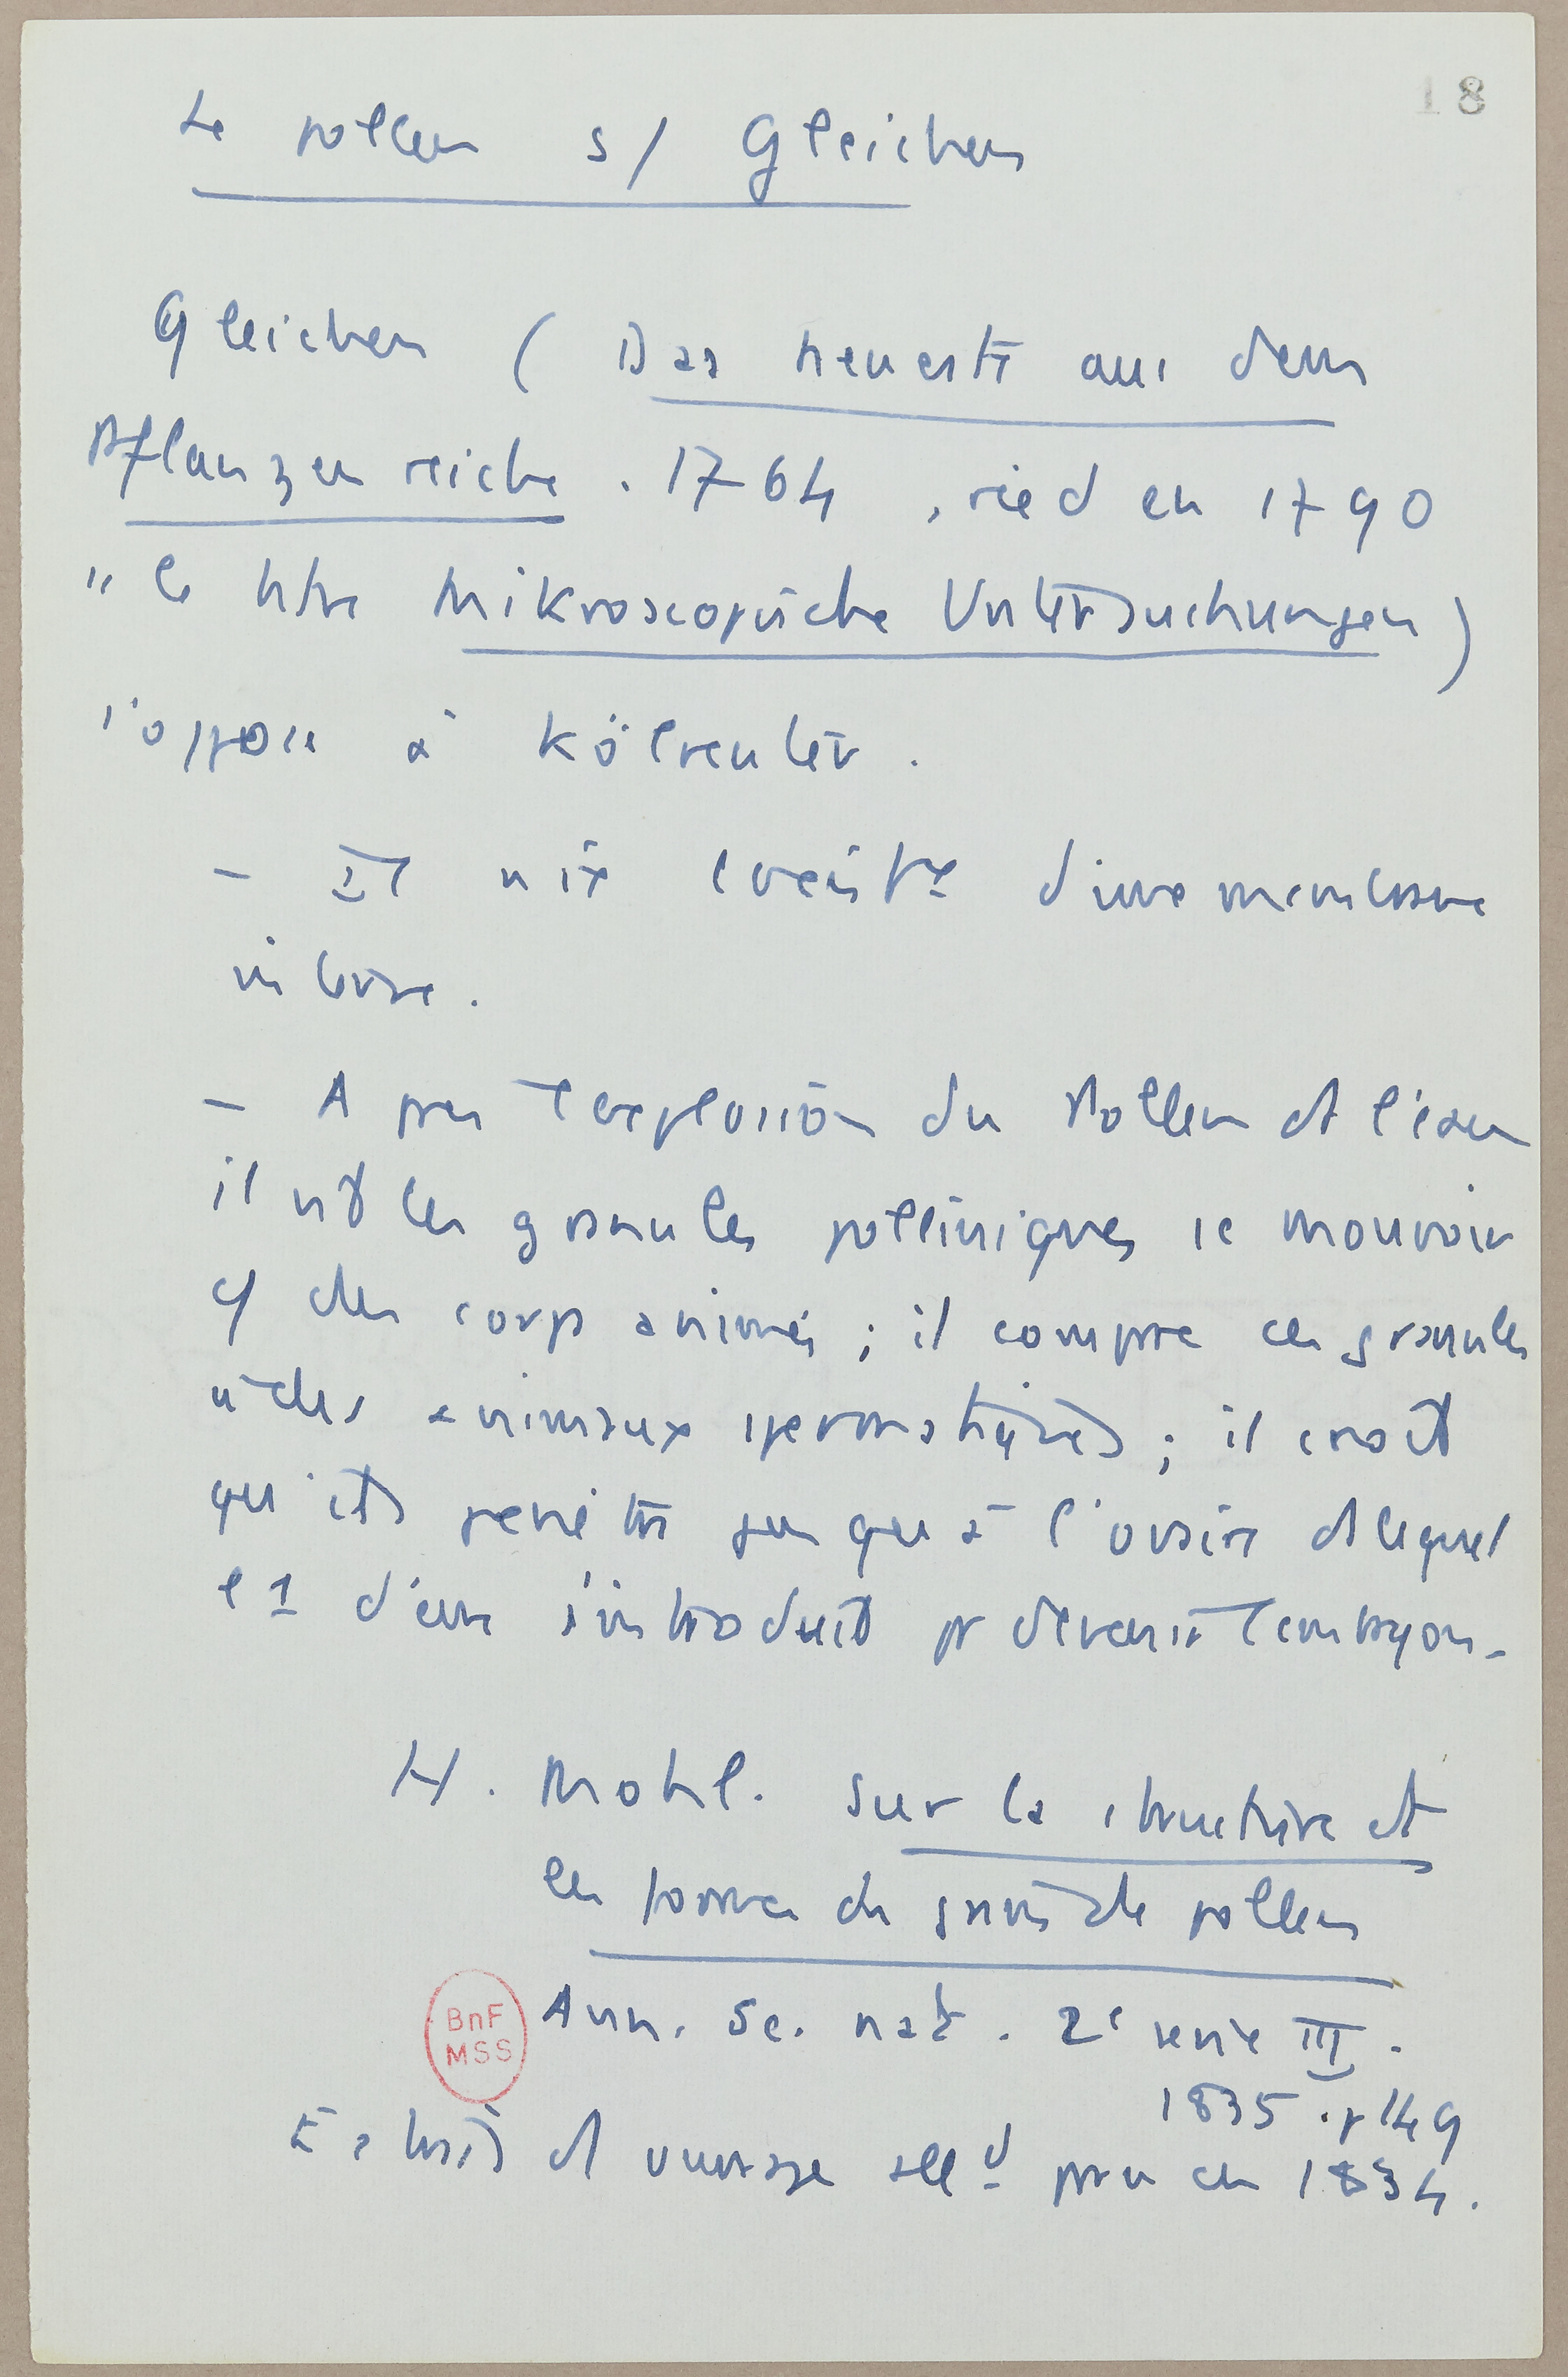 18
Le pollen s/ Gleichen
Gleichen ( Das neueste aus dem
Pflanzenreiche . 1764 , rééd en 1790
ss le titre Mikroscopische Untersuchungen )
s'oppose à Kölreuter .
- Il nie l'existce d'une membrane
interne .
- Après l'explosion du Pollen ds l'eau
il vit les granules polliniques se mouvoir
c/ des corps animés ; il compare ces granules
à des animaux spermatiques ; il croit
qu'ils pénètrt jusqu'à l'ovaire ds lequel
l'1 d'eux s'introduit pr devenir l'embryon .
H . Mohl . Sur la structure et
les formes des grains de pollen
Ann . Sc . nat . 2e série III .
1835 . p 149
BnF
MSS
Extrait d'1 ouvrage alld paru en 1834 .